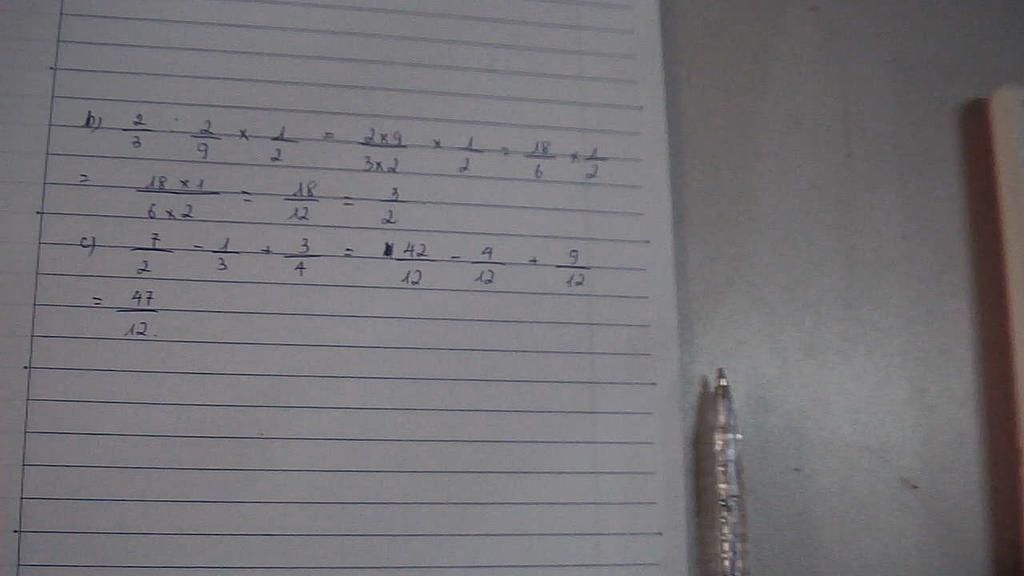 b) 2/3 : 2/9 × 1/2 = 2×9/3×2 × 1/2 = 18/6 × 1/2
= 18×1/6×2 = 18/12 = 3/2
c) 7/2 - 1/3 + 3/4 = 42/12 - 4/12 + 9/12
= 47/12.